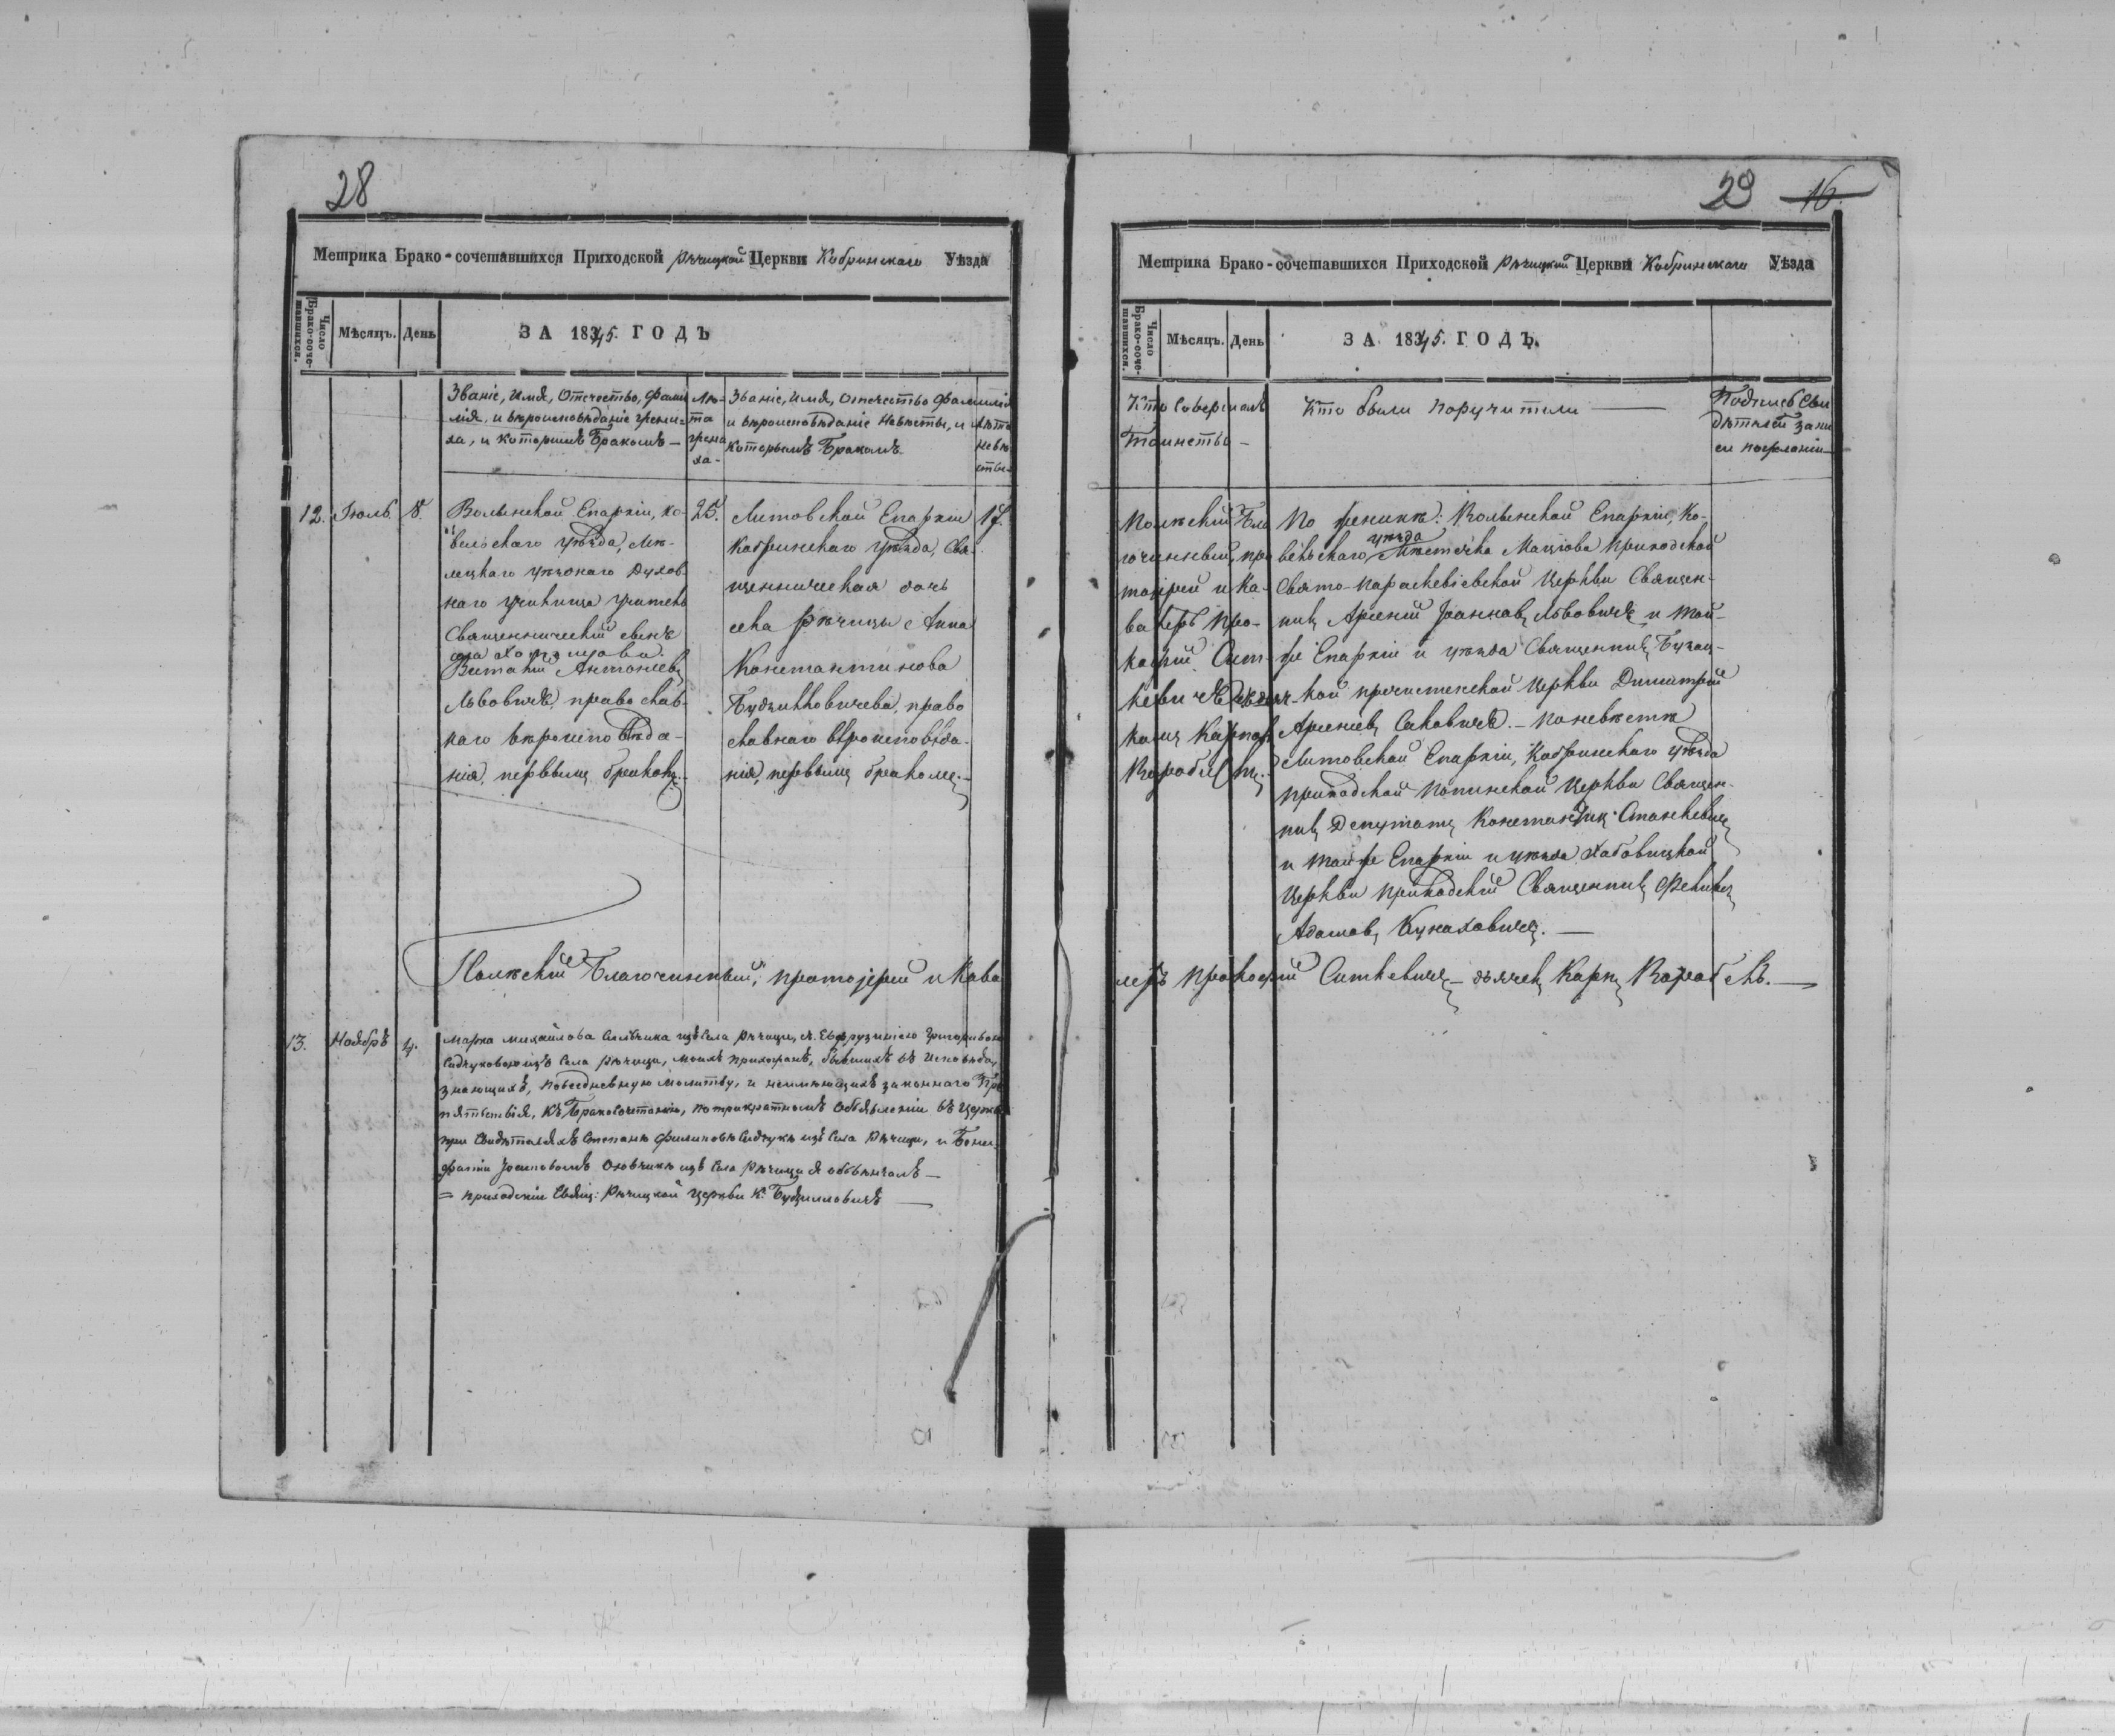 28
Метрика Брако-сочетавшихся Приходской Рѣчицкой Церкви Кобринскаго Уѣзда
Число Брако-соче-тавшихся.
Мѣсяцъ.
День
ЗА 1845. ГОДЪ
Званіе, Имя, Отечество, Фами
лія, и вѣроисповѣданіе жени=
ха, и которымъ Бракомъ —
Лѣ-
та
жени
ха-
Званіе, Имя, Отечество Фамилія
и вѣроисповѣданіе Невѣсты, и
которымъ Бракомъ.
Лѣта
невѣ
сты
12. Іюль 8.
Волынской Епархіи, Ко-
вельскаго уѣзда, Мѣ-
лецкаго уѣзднаго Духов
наго училища учитель
Священническій сынъ
Виталій Антоніевъ
Львовичъ, православ-
наго вѣроисповѣда-
нія, первымъ бракомъ.
25.
Литовской Епархіи
Кобринскаго уѣзда, Свя-
щенническая дочь
села Рѣчицы Анна
Константинова
Будзилловичева, право
славнаго вѣроисповѣда-
нія, первымъ бракомъ.—
Полѣскій Благочинный, протоіерей и Кава
13. Ноябрь 4.
Марка Михайлова Сильчика изъ Села Рѣчицы, съ Евфрузиніею Григорьвою
Садчуковою изъ Села Рѣчицы, моихъ прихожанъ, бывшихъ въ Исповѣди,
знающихъ, повседневную молитву, и неимѣющихъ законнаго Пре
пятствія, къ Бракосочетанію, по трикратномъ Объявленіи въ Церкви
при Свидѣтеляхъ Степанѣ Филиповѣ Садчукѣ изъ Села Рѣчицы, и Бони
фатіи Оховчикѣ изъ Села Рѣчицы я обвѣнчалъ —
= приходскій Свящ: Рѣчицкой Церкви К. Будзилловичъ —
29 16
Метрика Брако-сочетавшихся Приходской Рѣчицкой Церкви Кобринскаго Уѣзда
Число Брако-соче-тавшихся.
Мѣсяцъ.
День
ЗА 1845. ГОДЪ.
Кто Совершалъ
Таинство —
Кто были поручители —
Подпись Сви
дѣтелей запи
си по желанію
Полѣскій Бла
гочинный, про
тоіерей и Ка-
валеръ Про-
кофій Сит-
кевичъ съ дьяч-
комъ Карпом
Воробьемъ.
По женихѣ: Волынской Епархіи, Ко-
вельскаго уѣзда Мѣстечка Маціова приходской
Свято-Параскевіевской Церкви Священ-
никъ Арсеній Іоанновъ Львовичъ и той-
же Епархіи и уѣзда Священникъ
кой пречистенской Церкви Димитрій
Арсеніевъ Саковичъ. — По невѣстѣ
Литовской Епархіи, Кобринскаго уѣзда
приходской Попинской Церкви Священ-
никъ Депутатъ Константинъ Станкевичъ
и той же Епархіи и уѣзда Хабовицкой
Церкви приходскій Священникъ
Адамовъ Кунаховичъ. —
леръ Прокофій Ситкевичъ — дьячекъ Карпъ Воробей. —